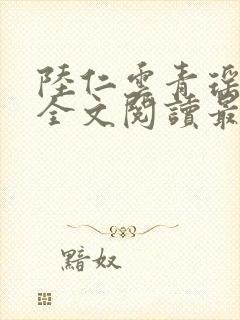 陸仁雲青瑶
全文閱讀最
黯奴